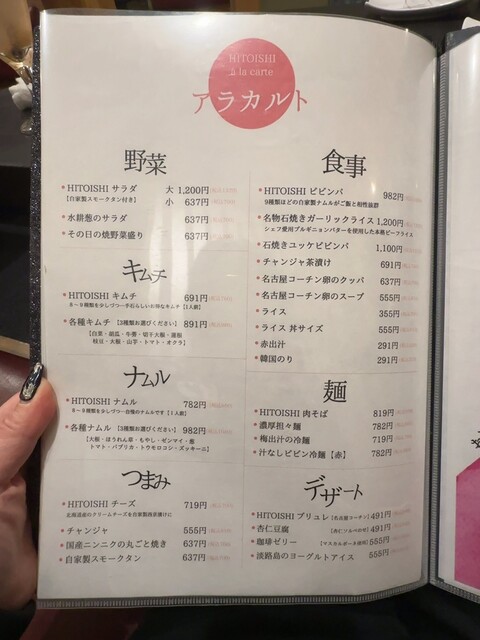 HITOISHI
à la carte
アラカルト
野菜
HITOISHI サラダ 大 1,200円
【自家製スモークタン付き】 小 637円
水耕葱のサラダ 637円
その日の焼野菜盛り 637円
キムチ
HITOISHI キムチ 691円
各種キムチ 【3種類お選びください】 891円
【白菜・胡瓜・牛蒡・切干大根・蓮根
枝豆・大根・山芋・トマト・オクラ】
ナムル
HITOISHI ナムル 782円
各種ナムル 【3種類お選びください】 982円
【大根・ほうれん草・もやし・ゼンマイ・葱
トマト・パプリカ・トウモロコシ・ズッキーニ】
つまみ
HITOISHI チーズ 719円
北海道産のクリームチーズを自家製西京漬けに
チャンジャ 555円
国産ニンニクの丸ごと焼き 637円
自家製スモークタン 637円
食事
HITOISHI ビビンバ 982円
9種類ほどの自家製ナムルがご飯と相性抜群
名物石焼きガーリックライス 1,200円
シェフ愛用ブルギニョンバターを使用した本格ビーフライス
石焼きユッケビビンバ 1,100円
チャンジャ茶漬け 691円
名古屋コーチン卵のクッパ 637円
名古屋コーチン卵のスープ 555円
ライス 355円
ライス 丼サイズ 555円
赤出汁 291円
韓国のり 291円
麺
HITOISHI 肉そば 819円
濃厚担々麺 782円
梅出汁の冷麺 719円
汁なしビビン冷麺【赤】 782円
デザート
HITOISHI ブリュレ【名古屋コーチン】 491円
杏仁豆腐 【杏仁ソルベのせ】 491円
珈琲ゼリー 【マスカルポーネ使用】 555円
淡路島のヨーグルトアイス 555円